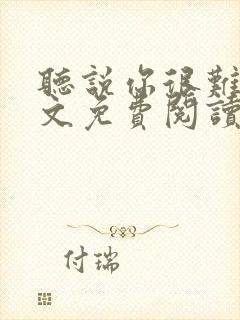 聽説你很難
文免費閱讀
付瑞